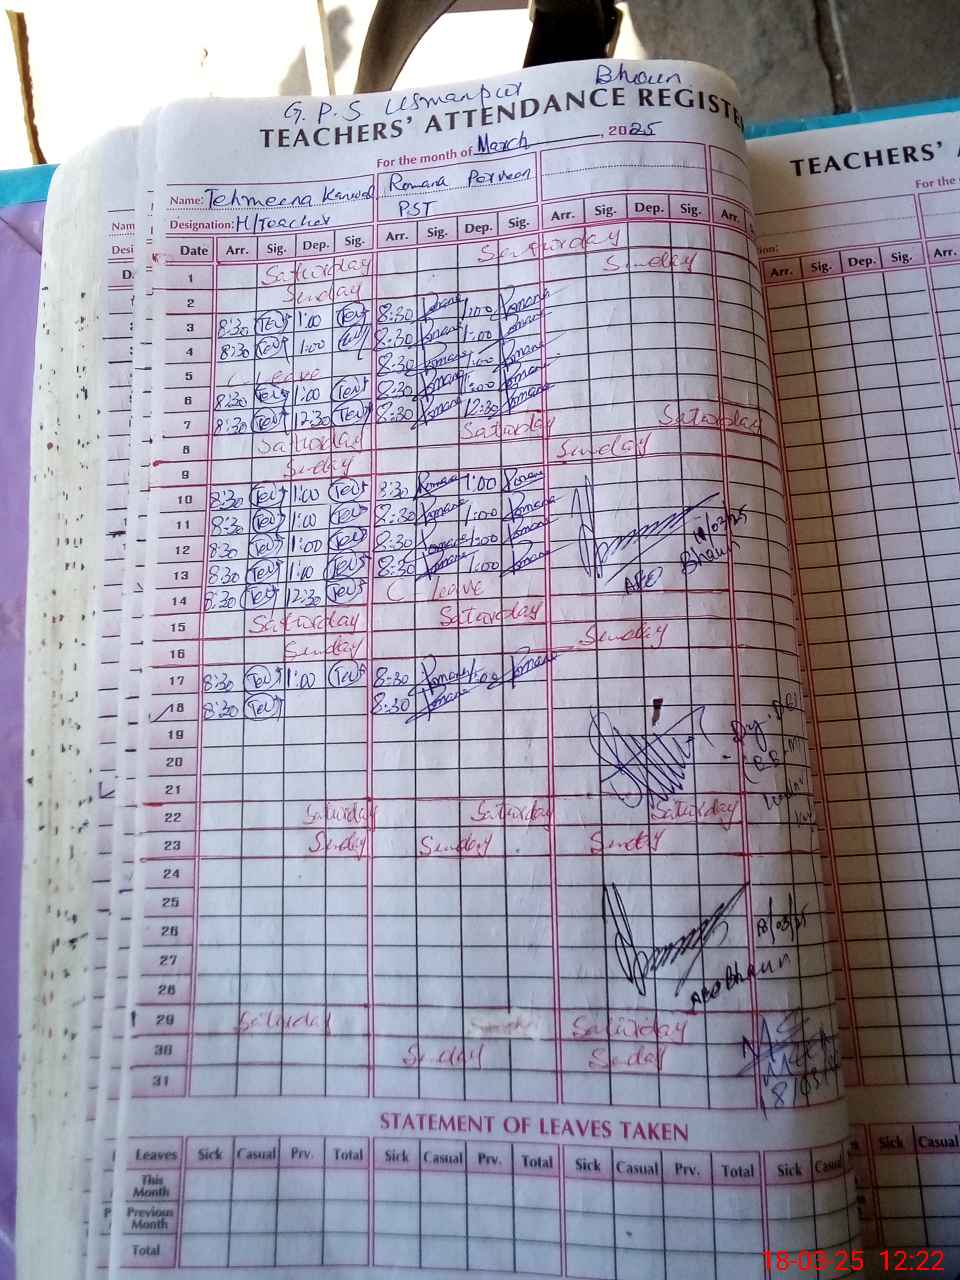 G.P.S Usmanpur Bhaun
TEACHERS' ATTENDANCE REGISTE
For the month of March, 2025
Name: Tehmeena Kanwal Romana Perveen
Designation: H/Teacher PST
Date Arr. Sig. Dep. Sig. Arr. Sig. Dep. Sig. Arr. Sig. Dep. Sig. Arr.
1 Saturday Saturday
2 Sunday Sunday
3 8:30 1:00 8:30 Romana 1:00 Romana
4 8:30 1:00 8:30 Romana 1:00 Romana
5 C. Leave 8:30 Romana 1:00 Romana
6 8:30 1:00 8:30 Romana 1:00 Romana
7 8:30 12:30 8:30 Romana 12:30 Romana
8 Saturday Saturday Saturday
9 Sunday Sunday
10 8:30 1:00 8:30 Romana 1:00 Romana
11 8:30 1:00 8:30 Romana 1:00 Romana
12 8:30 1:00 8:30 Romana 1:00 Romana
13 8:30 1:00 8:30 Romana 1:00 Romana
14 8:30 12:30 C leave
AEO Bhaun
15 Saturday Saturday
16 Sunday Sunday
17 8:30 1:00 8:30 Romana 1:00 Romana
18 8:30 8:30 Romana
19
20
21
22 Saturday Saturday Saturday
23 Sunday Sunday Sunday
24
25
26
27
28
18/03/25
AEO Bhaun
29 Saturday Saturday
30 Sunday Sunday
31
STATEMENT OF LEAVES TAKEN
Leaves Sick Casual Prv. Total Sick Casual Prv. Total Sick Casual Prv. Total Sick
This Month
Previous Month
Total
TEACHERS'
For the
Arr. Sig. Dep. Sig. Arr.
Sick Casual
18-03-25 12:22